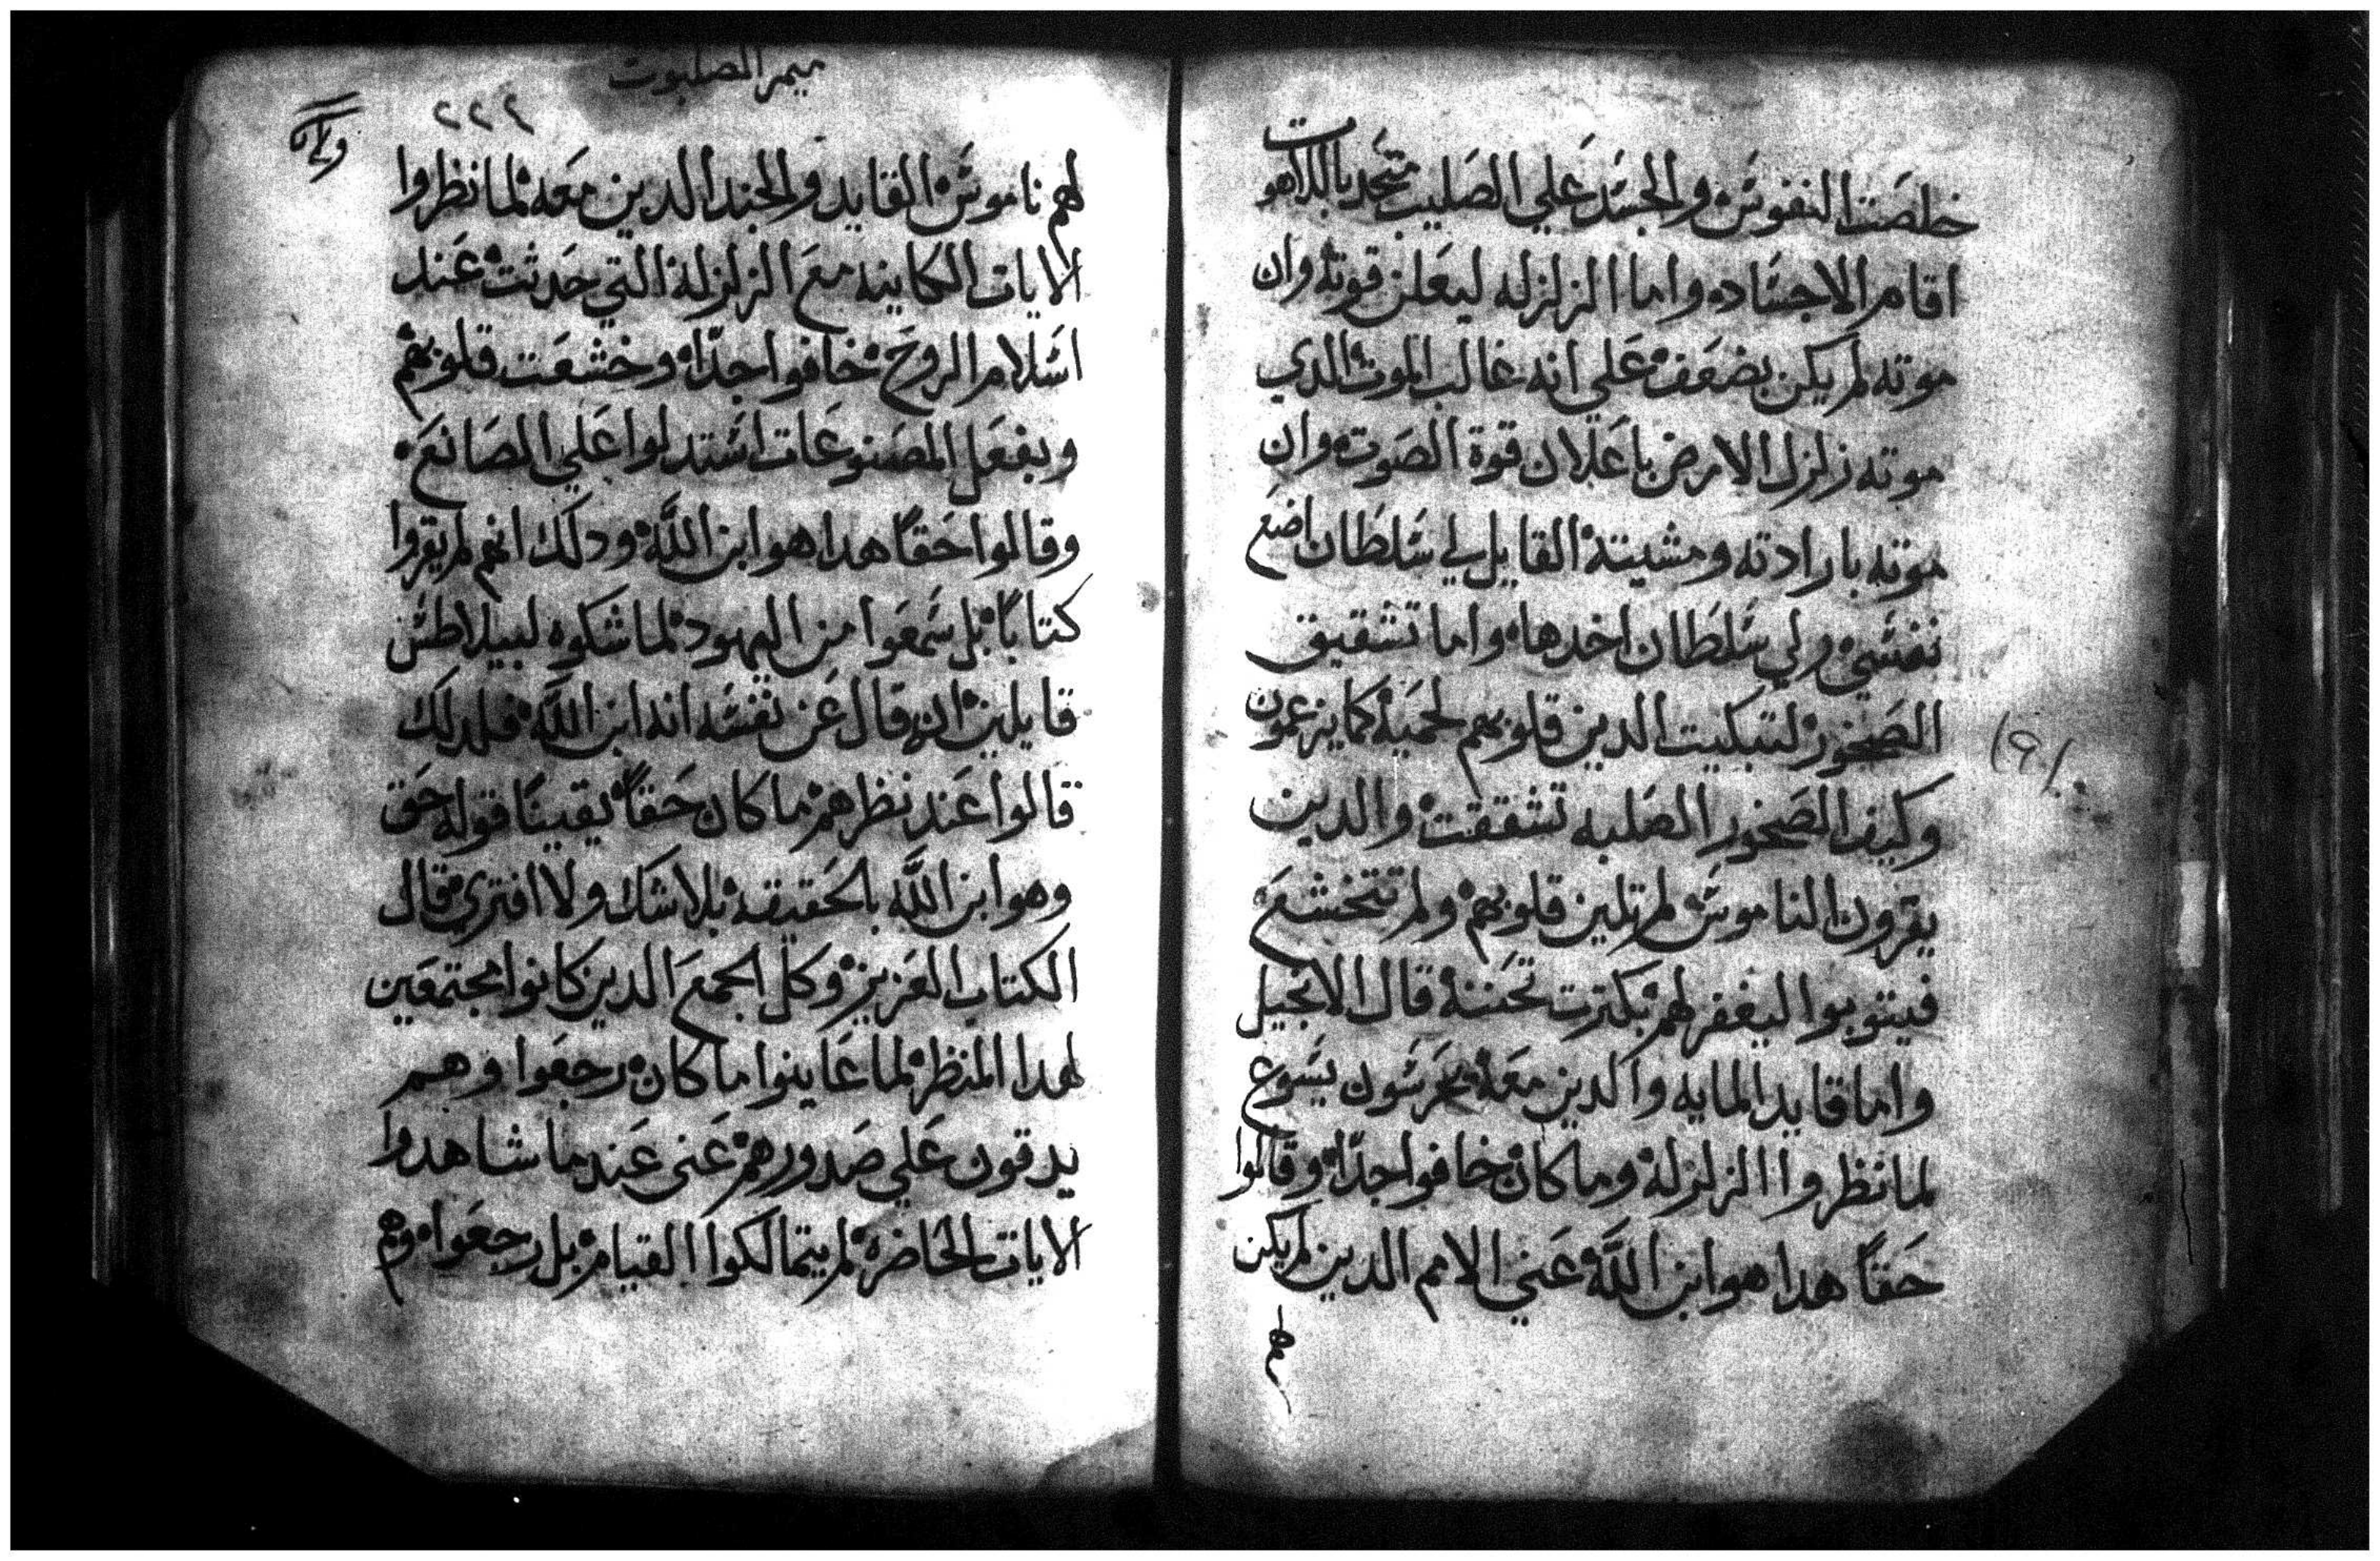 خلصت النفوس والجسد علي الصليب متحد باللاهوت
اقام الاجساده واما الزلزله ليعلن قوته وان
موته لم يكن بضعف علي انه غالب الموت الدي
موته زلزل الارض باعلان قوة الصوت وان
موته بارادته ومشيته القايل لي سلطان اضع
نفسي ولي سلطان اخدها واما تشقيق
الصخور لتبكيت الدين قلوبهم لحميه كما يزعمون
وكيف الصخور الصلبه تشققت والدين
يقرون الناموس لم تلين قلوبهم ولم تتخشع
فيتوبوا ليغفر لهم بكترت تحننه قال الانجيل
واما قايد المايه والدين معه يحرسون يسوع
لما نظروا الزلزله وما كان خافوا جدًا وقالوا
حقاً هدا هو ابن اللَّه عني الامم الدين لم يكن
لهم
ميمر الصلبوت
٢٢٤
لهم ناموس القايد والجند الدين معه لما نظروا
الايات الكاينه مع الزلزلة التي حدثت عند
اسلام الروح خافوا جدًا وخشعت قلوبهم
وبفعل المصنوعات استدلوا علي الصانع
وقالوا حقاً هدا هو ابن اللَّه ودلك انهم لم يقروا
كتاباً بل سمعوا من اليهود لما شكوه لبيلاطس
قايلين انه قال عن نفسه انه ابن اللَّه فلدلك
قالوا عند نظرهم ما كان حقاً يقينًا قوله حق
وهو ابن اللَّه بالحقيقه بلا شك ولا افتري قال
الكتاب العزيز وكل الجمع الدين كانوا مجتمعين
لهدا المنظر لما عاينوا ما كان رجعوا وهم
يدقون علي صدورهم عني عند ما شاهدوا
الايات الحاضره لم يتمالكوا القيام بل رجعوا وهم